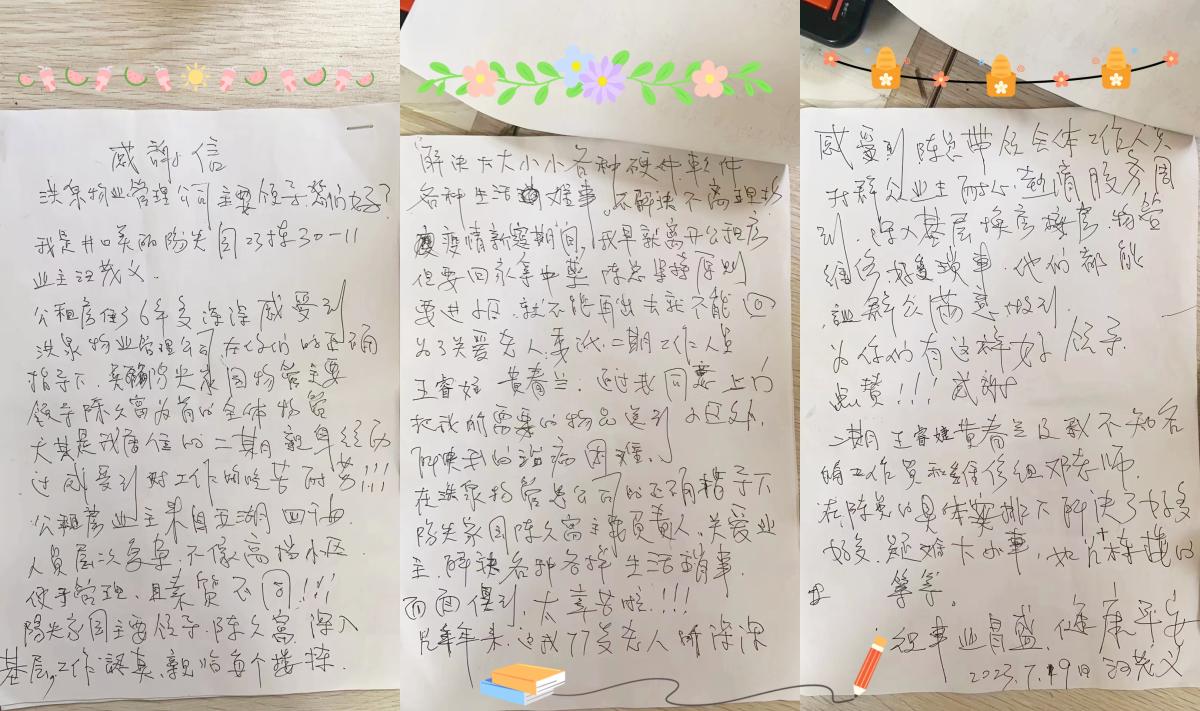 感謝信
洪泉物业管理公司主要领子您们好?
我是井口美丽阳光家园23栋30-11
业主汪茂义.
公租房住了6年多深深感受到
洪泉物业管理公司在你们的正确
指导下,阳光家园物管主要
领子陈久富为首的全体物管
尤其是我居住的二期親身经历
过感受到对工作的吃苦而劳!!!
公租房业主来自五湖四海.
人员层次复杂.不像高档小区
便于管理.且素质不同!!!
陽光家园主要领子.陈久富.深入
基层,工作認真,親临每个楼栋.
解决大大小小各种硬件軟件
各种生活难事.不解决不离现场
疫情新冠期间,我早就离开公租房
但要回家拿中藥.陈总坚持原则
要进小区.就不能再出去就不能回
为了关爱老人.委託二期工作人员
王睿婭 黄春兰.通过我同意上门
把我所需要的物品送到小区外,
解决我的治病困难.
在洪泉物管总公司的正确指子下
阳光家园陈久富主要负责人.关爱业
主.解决各种各样生活琐事.
面面俱到.太辛苦啦.!!!
几年来.让我77岁老人所深深
感受到陈总带领全体工作人员
对群众业主耐心.熱情服务周
到.深入基层挨房接房.物管
维修.好多琐事.他们都能
讓群众滿意做到.
为你们有这样好领子.
点赞!!!感謝
二期王睿婭黄春兰及我不知名
的工作员和维修组邓陈师.
在陈总的具体安排下解决了好多
好多.疑难大小事.
等等.
祝事业昌盛.健康平安
2023.7.19日汪茂义